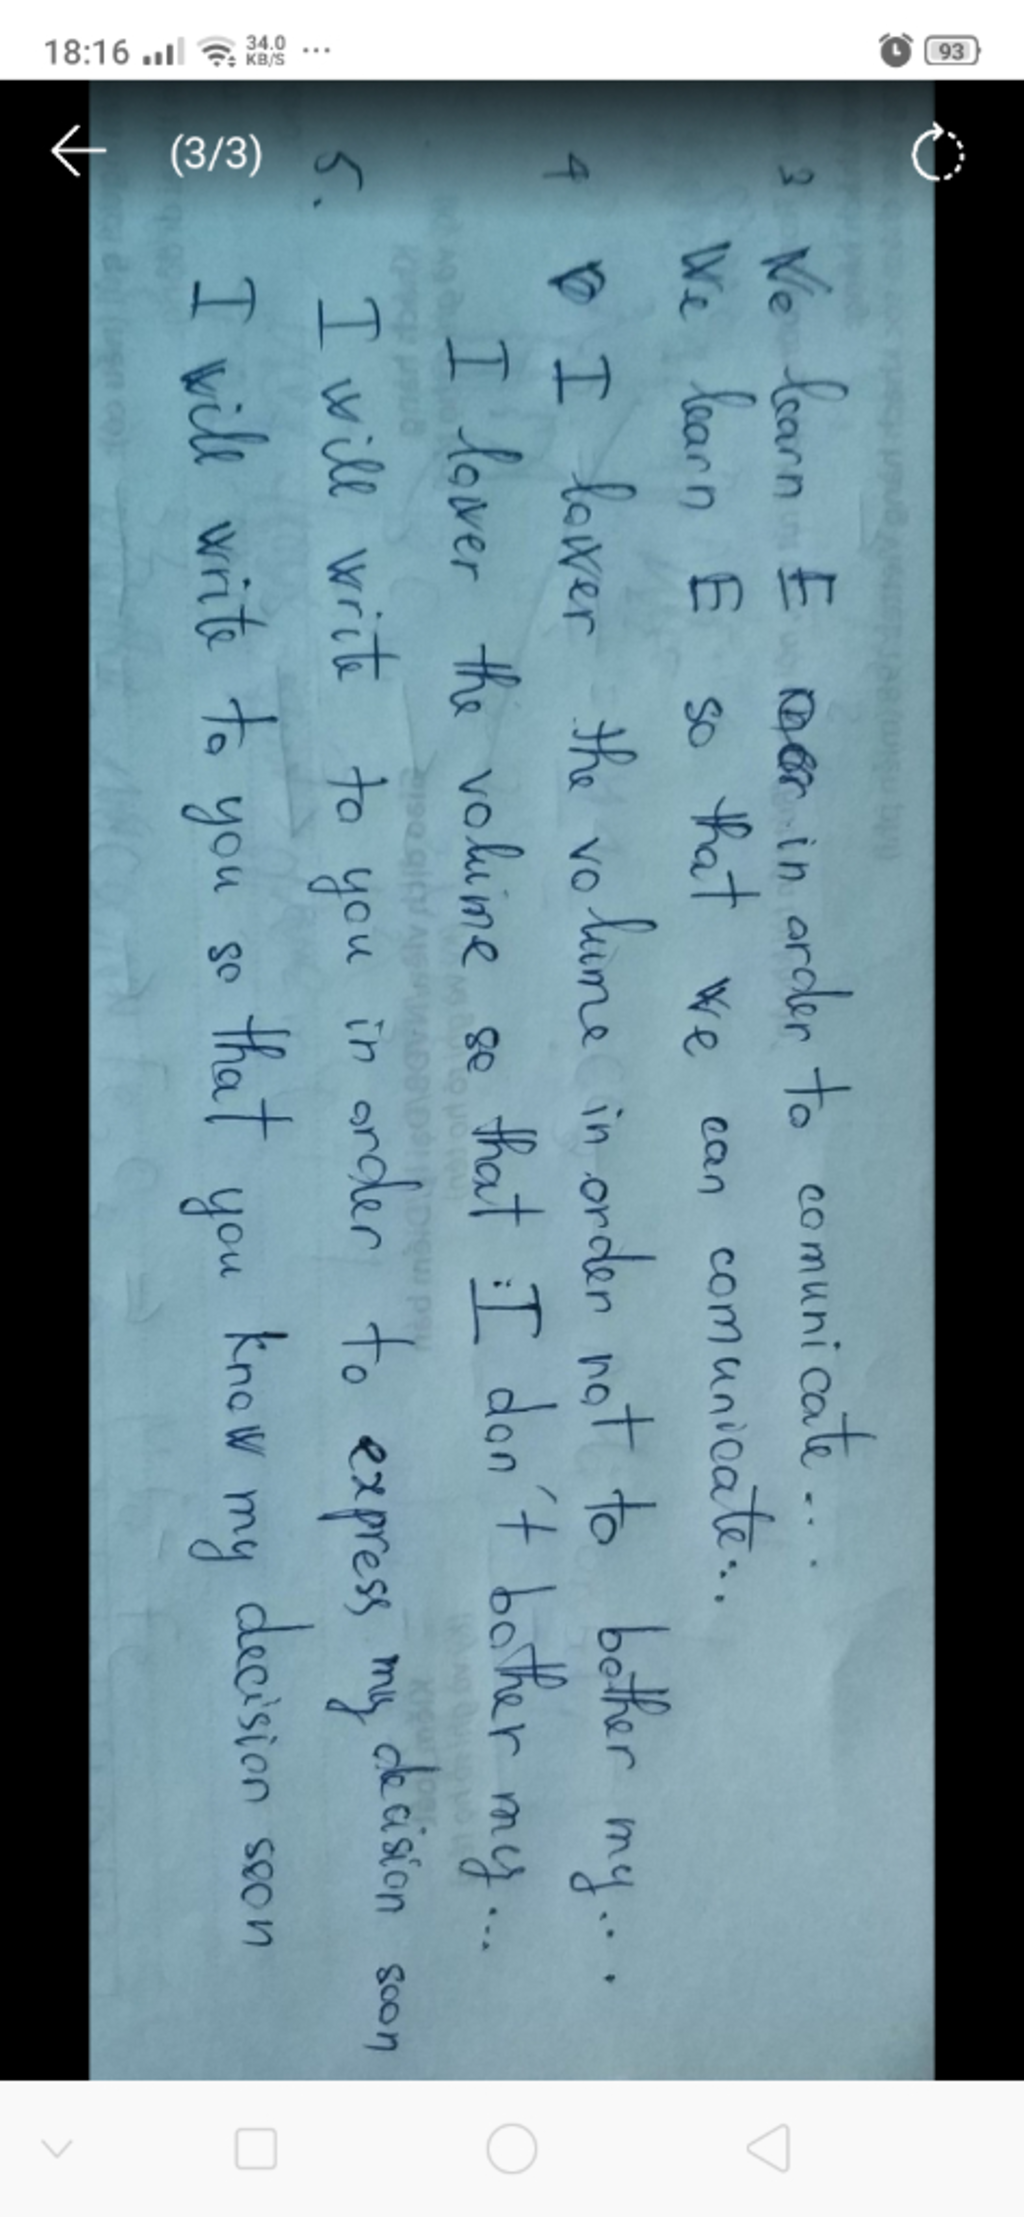 18:16 34.0 KB/S ... 93
(3/3)
3 We learn E in arder to comunicate...
We learn E so that we can comunicate...
4 I lower the volume in order not to bother my...
I lower the volume so that I don't bother my...
5. I will write to you in order to express my decision soon
I will write to you so that you know my decision soon